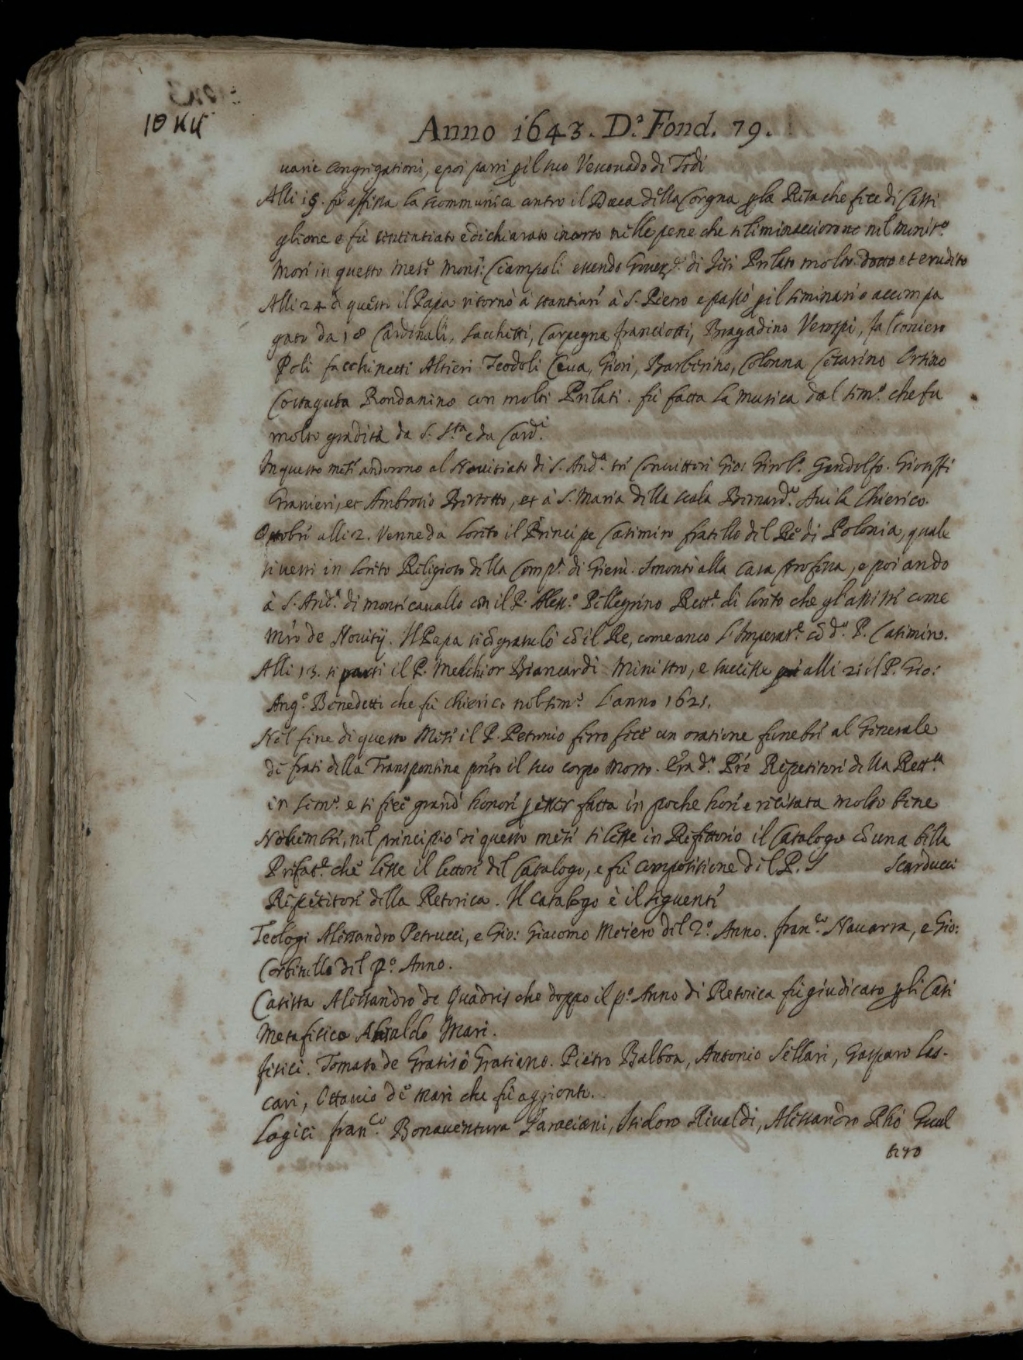 Anno 1643. D.ª Fond. 79.
varie Congregationi, e poi partì p il suo Vescovado di Todi
Alli 15. fu affissa la scommunica contro il Duca della Corgna p la Resa che fece di Casti
glione e fu sententiato e dichiarato incorso nelle pene che si li minacciorono nel Monit.º
Morì in questo mese Mons.r Ciampoli essendo Gover.re di Jesi Prelato molto dotto et erudito
Alli 24 di questo il Papa ritornò à stantiare à S. Pietro e passò p il seminario accompa
gnato da 18 Cardinali, Sacchetti, Carpegna franciotti, Bragadino Verospi, falconiero
Poli facchinetti Altieri Teodoli Ceva, Giori, Barberino, Colonna Cesarino Orsino
Costaguta Rondanino con molti Prelati. fù fatta la musica dal sem.º che fu
molto gradita da S. S.tà e da Card.i
In questo mese andorono al Novitiato di S. And.ª trè Convittori Gio: Girol.º Gandolfo. Gioseffi
Granieri, et Ambrosio Bertotto, et à S. Maria della scala Bernard.º Avila Chierico.
Ottobre alli 2. Venne da Loreto il Principe Casimiro fratello del Rè di Polonia, quale
si vestì in Loreto Religioso della Comp.ª di Giesù. Smontò alla Casa professa, e poi andò
à S. And.ª di monte cavallo con il P. Aless.º Pellegrino Rett.re di Loreto che gl'assistè come
Mro de Novitij. Il Papa si cõgratulò cõ il Re, come anco l'Imperat.re cõ d.º P. Casimiro.
Alli 13. si partì il P. Melchior Biancardi Ministro, e successe poi alli 21 il P. Gio:
Ang.º Benedetti che fu chierico nel sem.º l'anno 1621.
Nel fine di questo Mese il P. Petronio ferro fece un oratione funebre al Generale
de frati della Transpontina preso il suo corpo morto. Era d.º Prè Repetitore della Rett.ca
in sem.º e si fece grand' honore p esser fatta in poche hore e recitata molto bene
Novembre, nel principio di questo mese si lesse in Refettorio il Catalogo cõ una bella
Prefat.e che lesse il lettore del Catalogo, e fu compositione del P. S Scarducci
Repetitore della Retorica. Il Catalogo è il seguente
Teologi Alessandro Petrucci, e Gio: Giacomo Moiero del 2.º Anno. fran.co Navarra, e Gio:
Corbinello del p.º Anno.
Casista Alessandro de Quadris che doppo il p.º Anno di Retorica fu giudicato p li Casi
Metafisico Ansaldo Mari.
fisici. Tomaso de Gratis ò Gratiano. Pietro Balboa, Antonio Sillari, Gasparo Las-
cari, Ottavio de Mari che fu aggionto.
Logici fran.co Bonaventura Isidoro Rivaldi, Alessandro Rhò Gual
tero